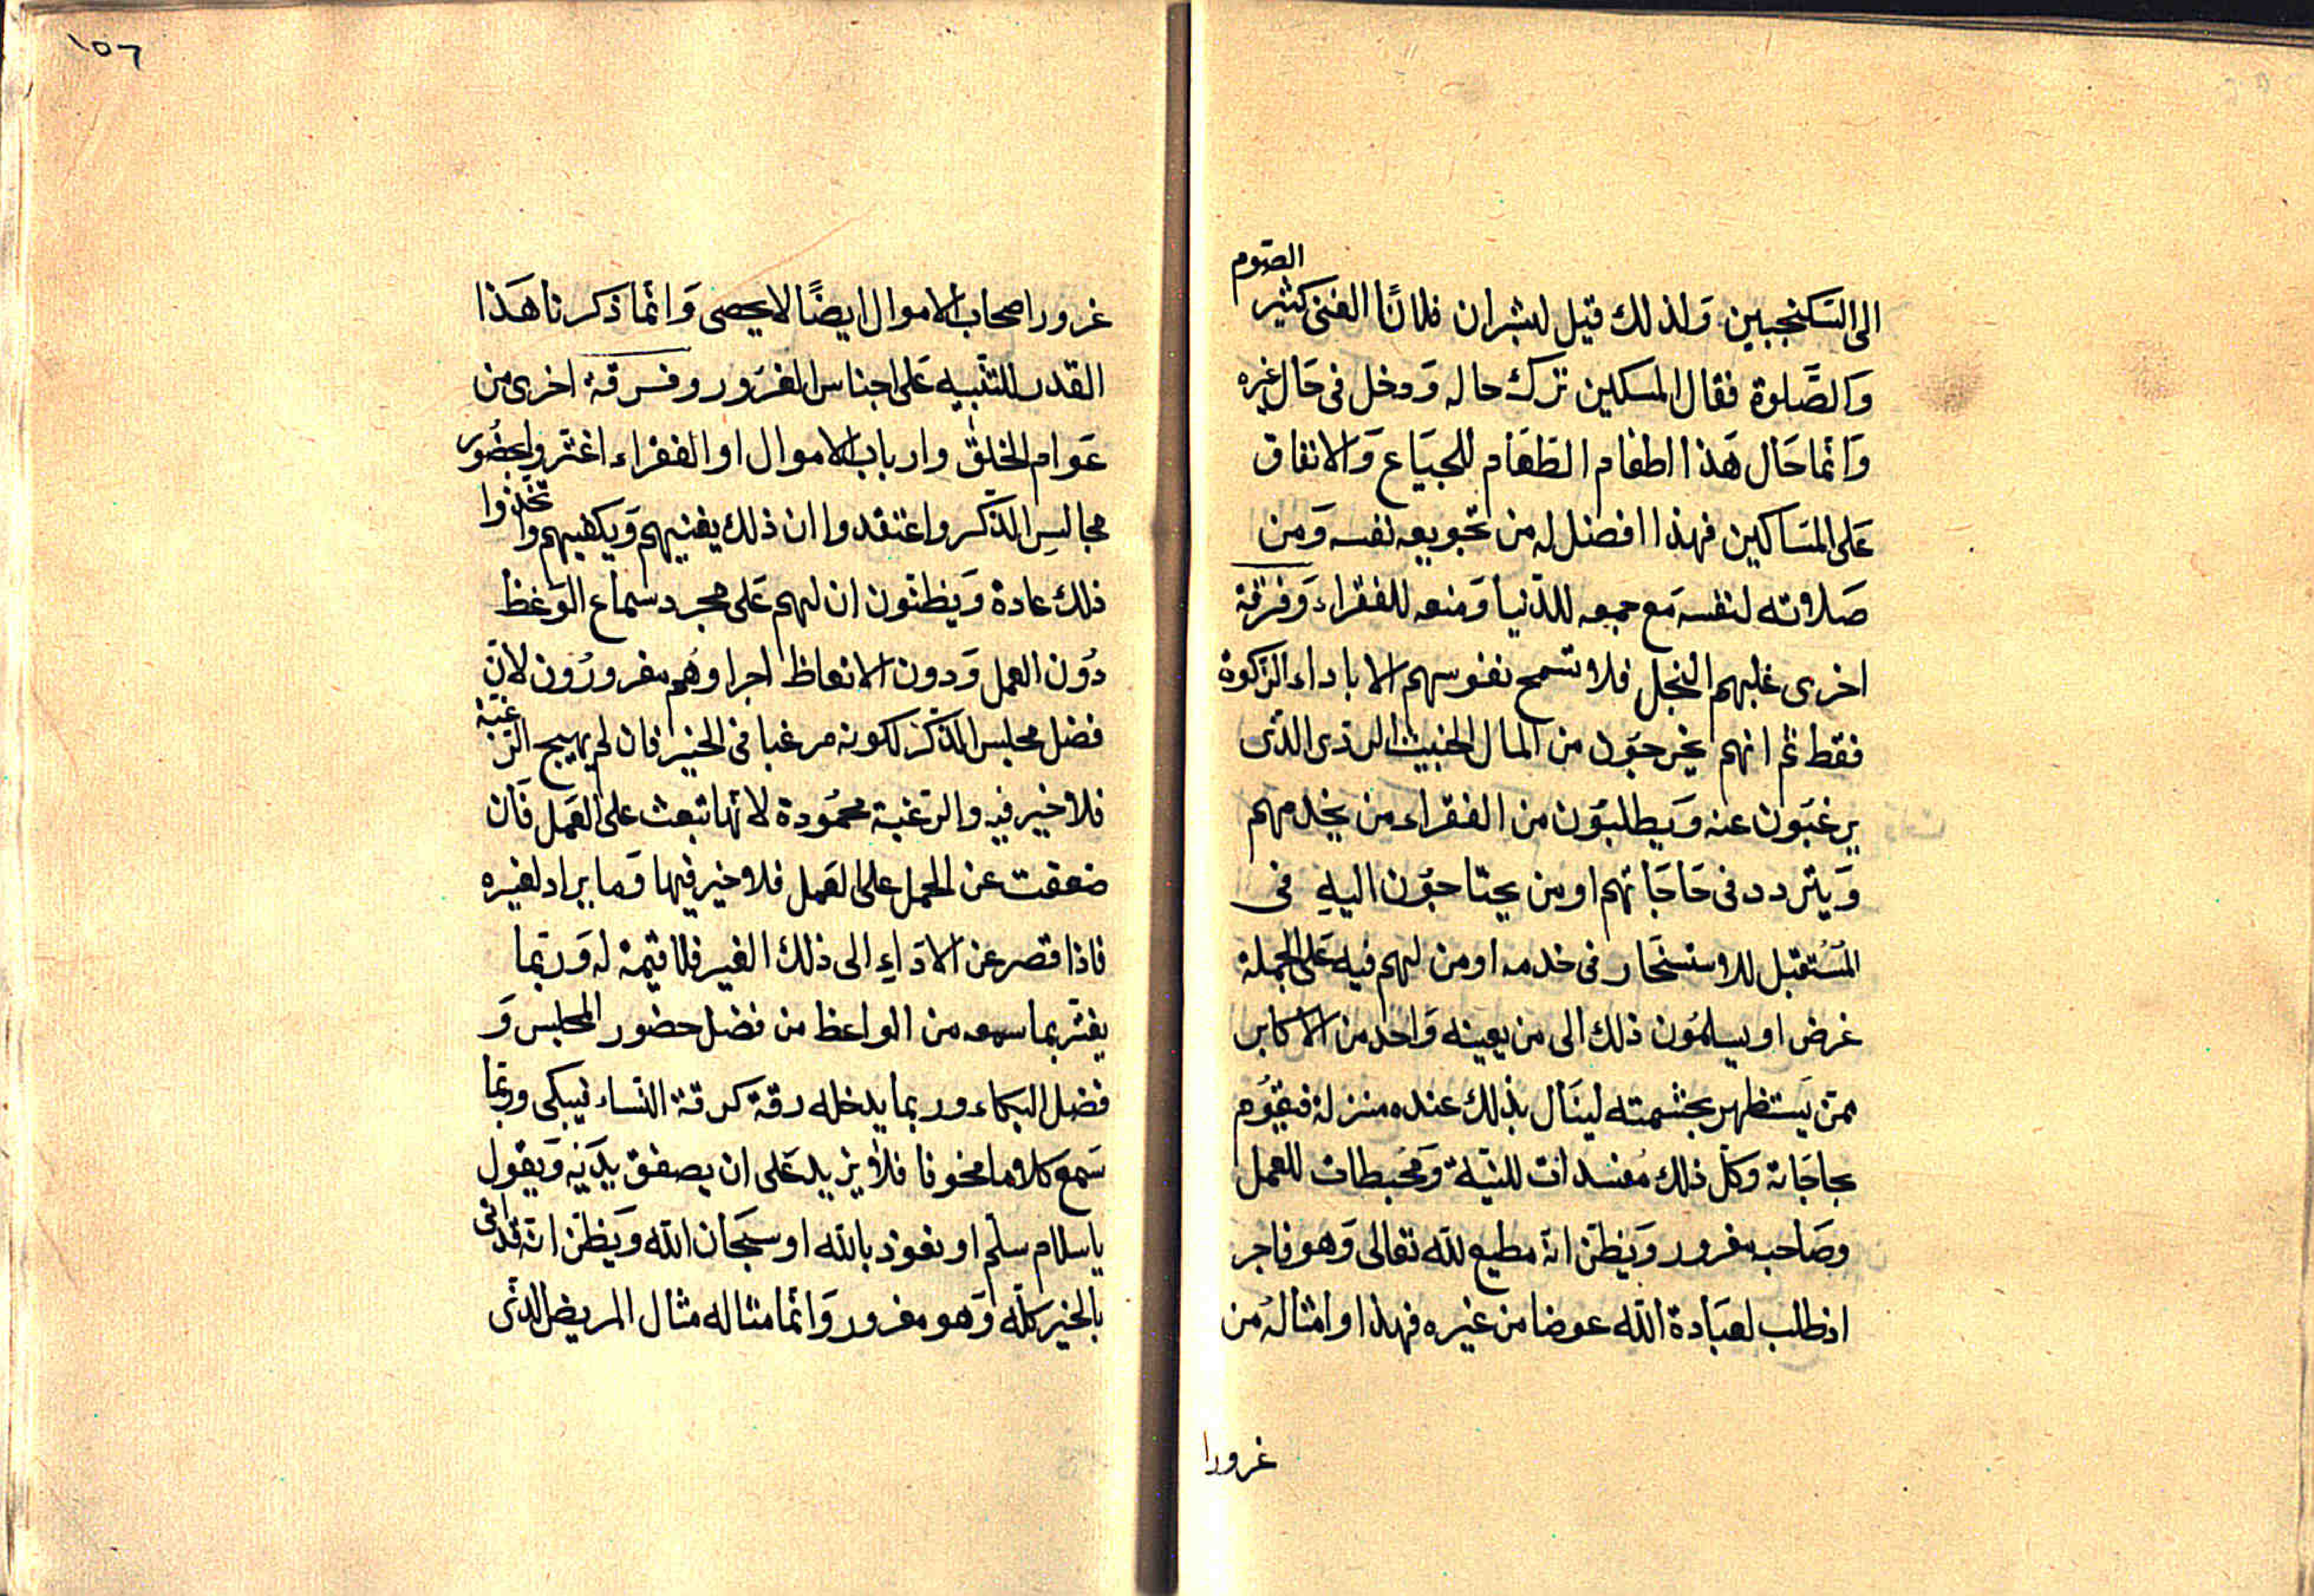 الى السكنجبين وَلذلك قيل لبشران فلانًا الغنى كثير الصّوم
وَالصَّلوة فقال المسكين ترك حاله وَدخل فى حَال غيره
وَانما حَال هَذا اطعام الطعَام للجيَاع وَالانفاق
عَلى المسَاكين فهذا افضل له من تجويعه نفسه وَمن
صَلاته لنفسه مَع جمعه للدّنيا وَمنعه للفقراء وَفرقة
اخرى غلبهم البخل فلا تسمح نفوسهم الا باداء الزكوة
فقط ثم انهم يخرجوَن من المال الخبيث الردى الذّى
يرغبَون عنه وَيطلبوَن من الفقراء من يخدمهم
وَيتردد فى حَاجَاتهم او من يحتاجوَن اليهِ فى
المسُتقبل للاستسخَار فى خدمه او من لهم فيه عَلى الجملة
غرض او يسلموَن ذلك الى من يعينه وَاحد من الاكابر
ممّن يَستظهر بحشمته لينَال بذلك عنده منزلة فيقوُم
بحاجَاته وكلّ ذلك مُفسدات للنيّة وَمُحبطات للعمل
وصَاحبه مغرور وَيظنّ انه مطيع لله تعالى وَهو فاجر
اذ طلب لعبَادة الله عوضا من غيره فهذا وامثالهُ من
غرورا
١٥٦
غرور اصحاب الاموال ايضًا لا يحصى وَانّما ذكرنا هَذا
القدر للتنبيه عَلى اجناس الغرَور وفرقة اخرى من
عَوام الخلق وارباب الاموال او الفقراء اغترّوا بحضُور
مجالسِ الذكر واعتقدوا ان ذلك يغنيهم وَيكفيهم واتخذوا
ذلك عادة وَيظنّون ان لهم عَلى مجرد سماع الوَعظ
دُون العمل وَدون الاتعاظ اجرا وهُم مغرورُون لانّ
فضل مجلس الذكر لكونه مرغبا فى الخير فان لم يهيج الرّغبة
فلا خير فيه والرّغبة محمُودة لانّها تبعث على العَمل فَان
ضعفت عن الحمل على العَمل فلا خير فيها وَما يراد لغيره
فاذا قصر عن الادَاءِ الى ذلك الغير فلا قيمة له وَربّما
يغتر بما سمعه من الواعظ من فضل حضور المجلس وَ
فضل البكاء وربما يدخله رقة كرقة النّساء فيبكى وربّما
سَمع كلاما مخوفا فلا يزيد عَلى ان يصفق بيدَيْه وَيقول
يا سلام سلّم او نعوذ بالله او سبحَان الله وَيظنّ انه قد اتى
بالخير كلّه وَهو مغرور وَانّما مثاله مثال المريض الذّى